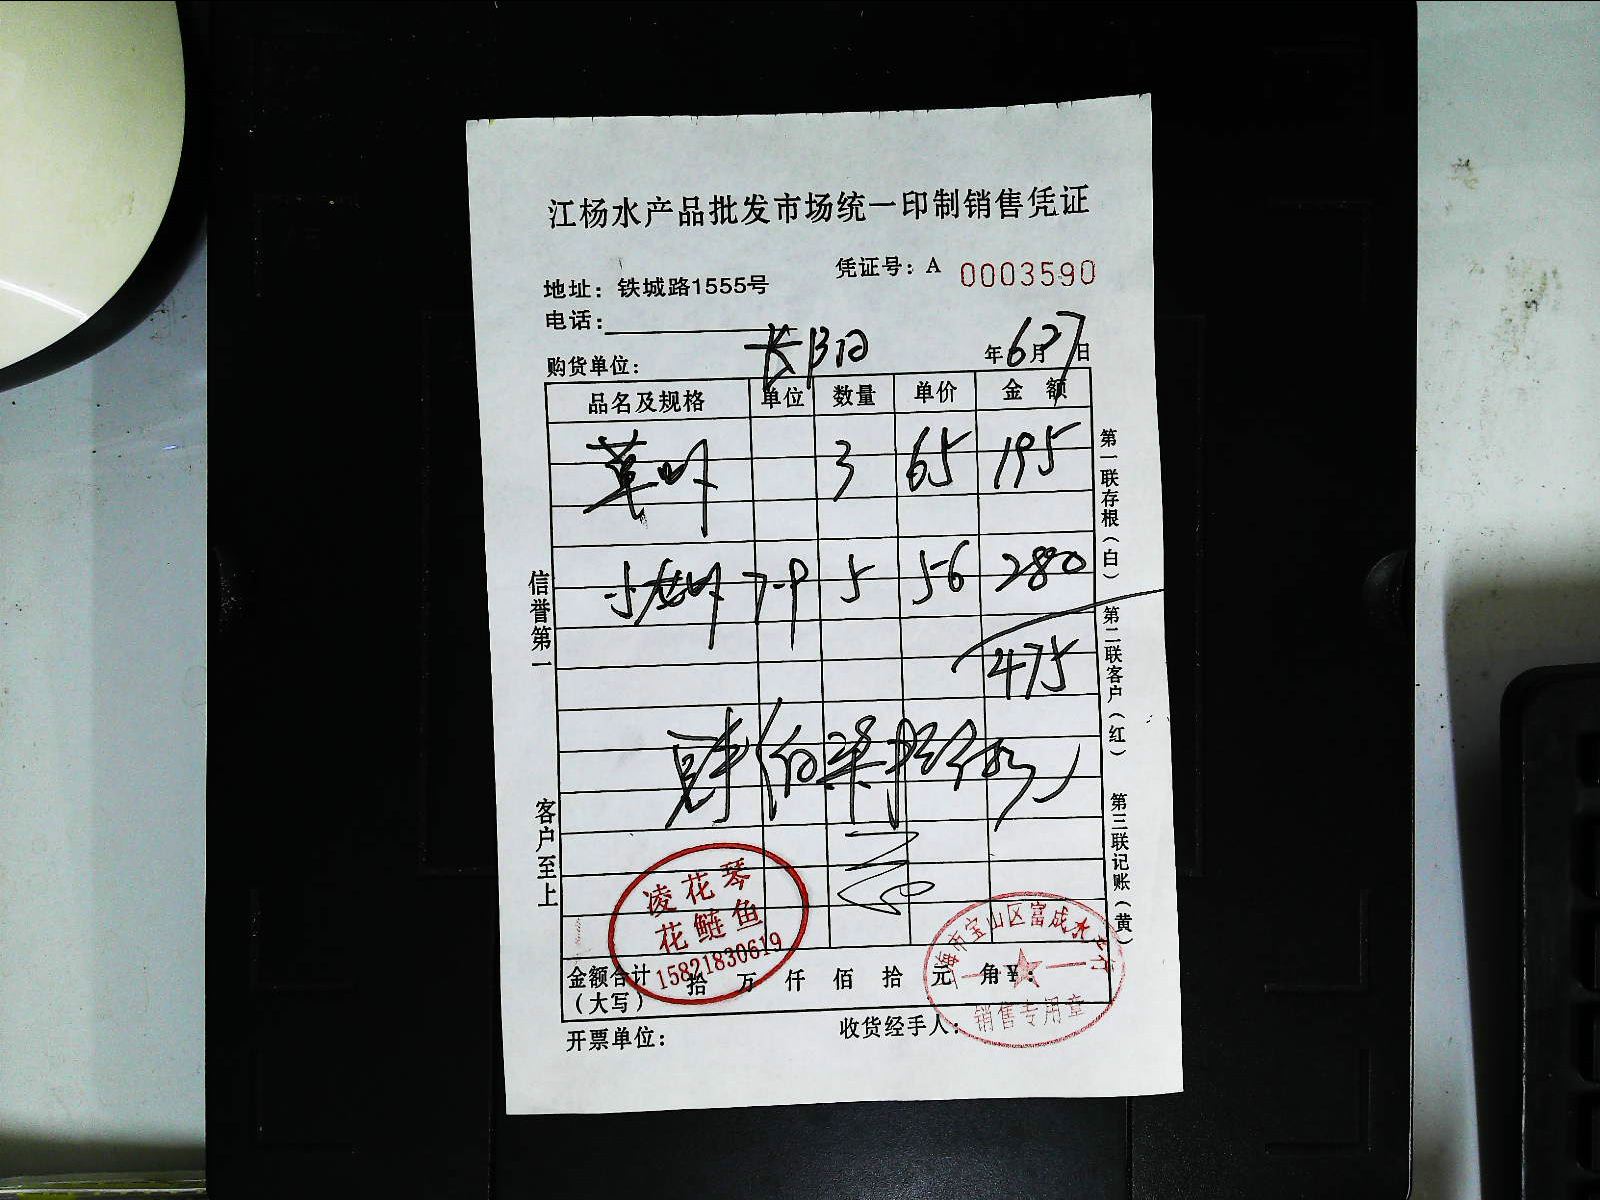 江杨水产品批发市场统一印制销售凭证
凭证号：A 0003590
地址：铁城路1555号
电话：
购货单位：
年6月27日
品名及规格 单位 数量 单价 金额
3 65 195
7-9 5 56 280
475
肆佰柒拾伍元
信誉第一
客户至上
第一联存根（白）
第二联客户（红）
第三联记账（黄）
凌花琴
花鲢鱼
15821830619
上海市宝山区富成水产行
销售专用章
金额合计（大写） 拾 万 仟 佰 拾 元 角 ¥：
开票单位：
收货经手人：